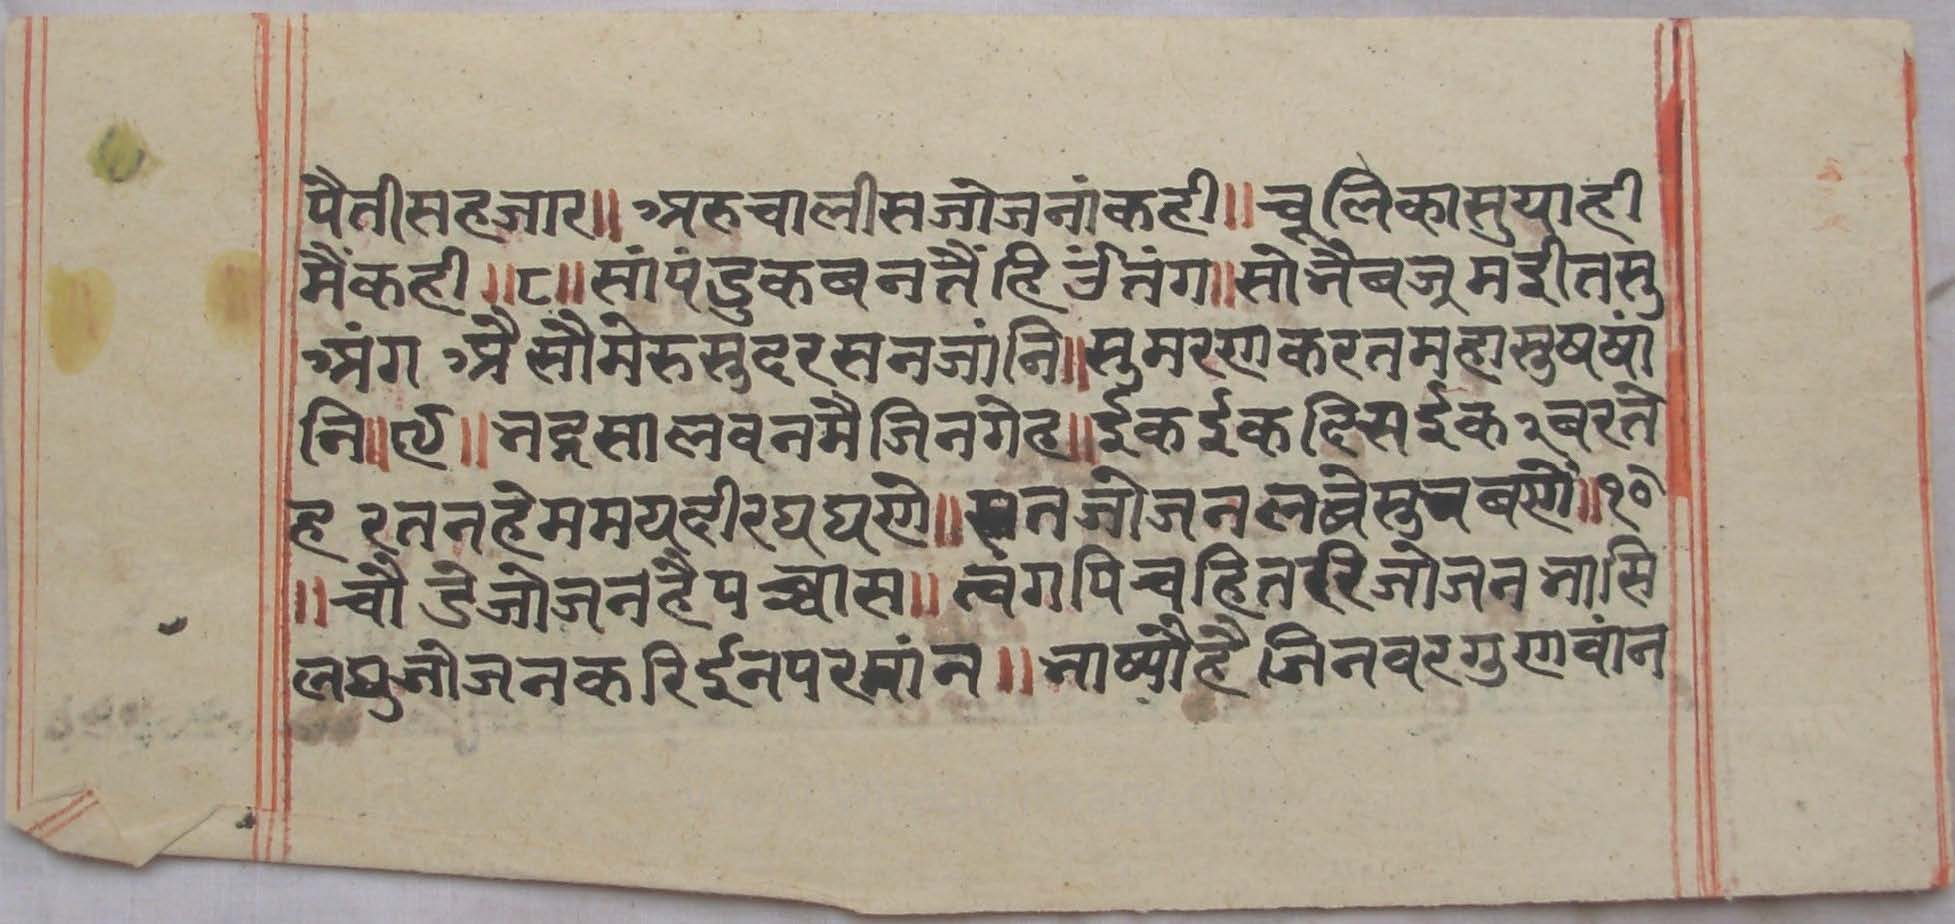 पैतीसहजार॥ अरुचालीसजोजनांकही॥ चूलिकासुयाही
मैंकही॥८॥ सांपंडुकबनतैंहि उंतंग॥ सोनैबज्रमईीतसु
अंग अैसौमेरुसुदरसनजांनि॥ सुमरणकरतमहासुषषां
नि॥९॥ भद्रसालवनमैजिनगेह॥ ईकईकदिसईक२बरने
ह रतनहेममयहीरघघणे॥ सतजोजनलंबेसुचबणे॥१०
॥चौडेजोजनहैपच्चास॥ त्वंगपिचहितरिजोजनभासि
लघुजोजनकरिईनपरमांन॥ भाष्यौहैजिनवरगुणवांन